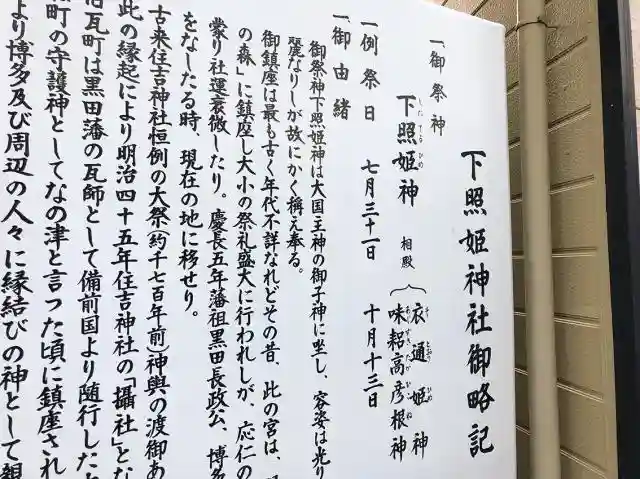 下照姫神社御略記
一御祭神
下照姫神 相殿 衣通姫神
味耜高彦根神
一例祭日 七月三十一日 十月十三日
一御由緒
御祭神下照姫神は大国主神の御子神に坐し、容姿は光り
麗なりしが故にかく称え奉る。
御鎮座は最も古く年代不詳なれどその昔、此の宮は、
の森」に鎮座し大小の祭礼盛大に行われしが、応仁の
蒙り社運衰微したり。慶長五年藩祖黒田長政公、博多
をなしたる時、現在の地に移せり。
古来住吉神社恒例の大祭(約千七百年前)神輿の渡御あ
此の縁起により明治四十五年住吉神社の「攝社」とな
瓦町は黒田藩の瓦師として備前国より随行した
町の守護神としてなの津と言った頃に鎮座され
より博多及び周辺の人々に縁結びの神として親